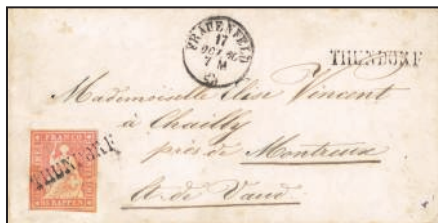 FRAUENFELD
17
7 M
THUNDORF
Mademoiselle Elise Vincent
à Chailly
près de Montreux
Ct. de Vaud.
FRANCO
THUNDORF
RAPPEN